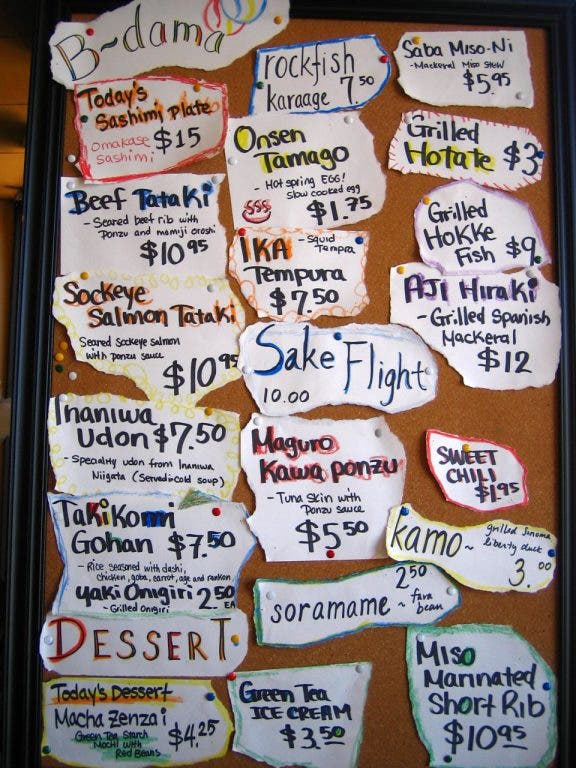 B-dama
Today's
Sashimi Plate
omakase
sashimi
$15
Beef Tataki
- Seared beef rib with
Ponzu and momiji oroshi
$10.95
Sockeye
Salmon Tataki
Seared Sockeye salmon
with ponzu sauce
$10.95
Inaniwa
Udon $7.50
- Specialty udon from Inaniwa
Niigata (Served cold soup)
Takikomi
Gohan $7.50
- Rice seasoned with dashi,
chicken, goba, carrot, age and renkon
Yaki Onigiri 2.50 EA
- Grilled Onigiri
DESSERT
Today's Dessert
Macha Zenzai
Green Tea Starch
Mochi with
Red Beans
$4.25
rockfish
karaage 7.50
Onsen
Tamago
- Hot spring EGG!
slow cooked egg
$1.75
IKA - Squid
Tempra
Tempura
$7.50
Sake Flight
10.00
Maguro
Kawa ponzu
- Tuna Skin with
Ponzu sauce
$5.50
2.50
soramame ~ fava
bean
Green Tea
ICE CREAM
$3.50
Saba Miso-Ni
- Mackeral Miso Stew
$5.95
Grilled
Hotate $3
Grilled
Hokke
Fish $9
AJI Hiraki
- Grilled Spanish
Mackeral
$12
SWEET
CHILI
$1.95
kamo ~ grilled Sonoma
liberty duck
3.00
Miso
Marinated
Short Rib
$10.95